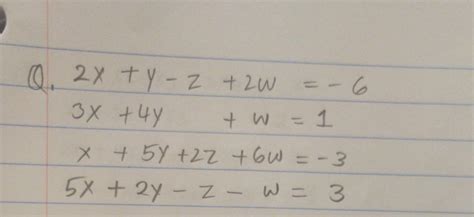 Q. 2x + y - z + 2w = -6
3x + 4y + w = 1
x + 5y + 2z + 6w = -3
5x + 2y - z - w = 3